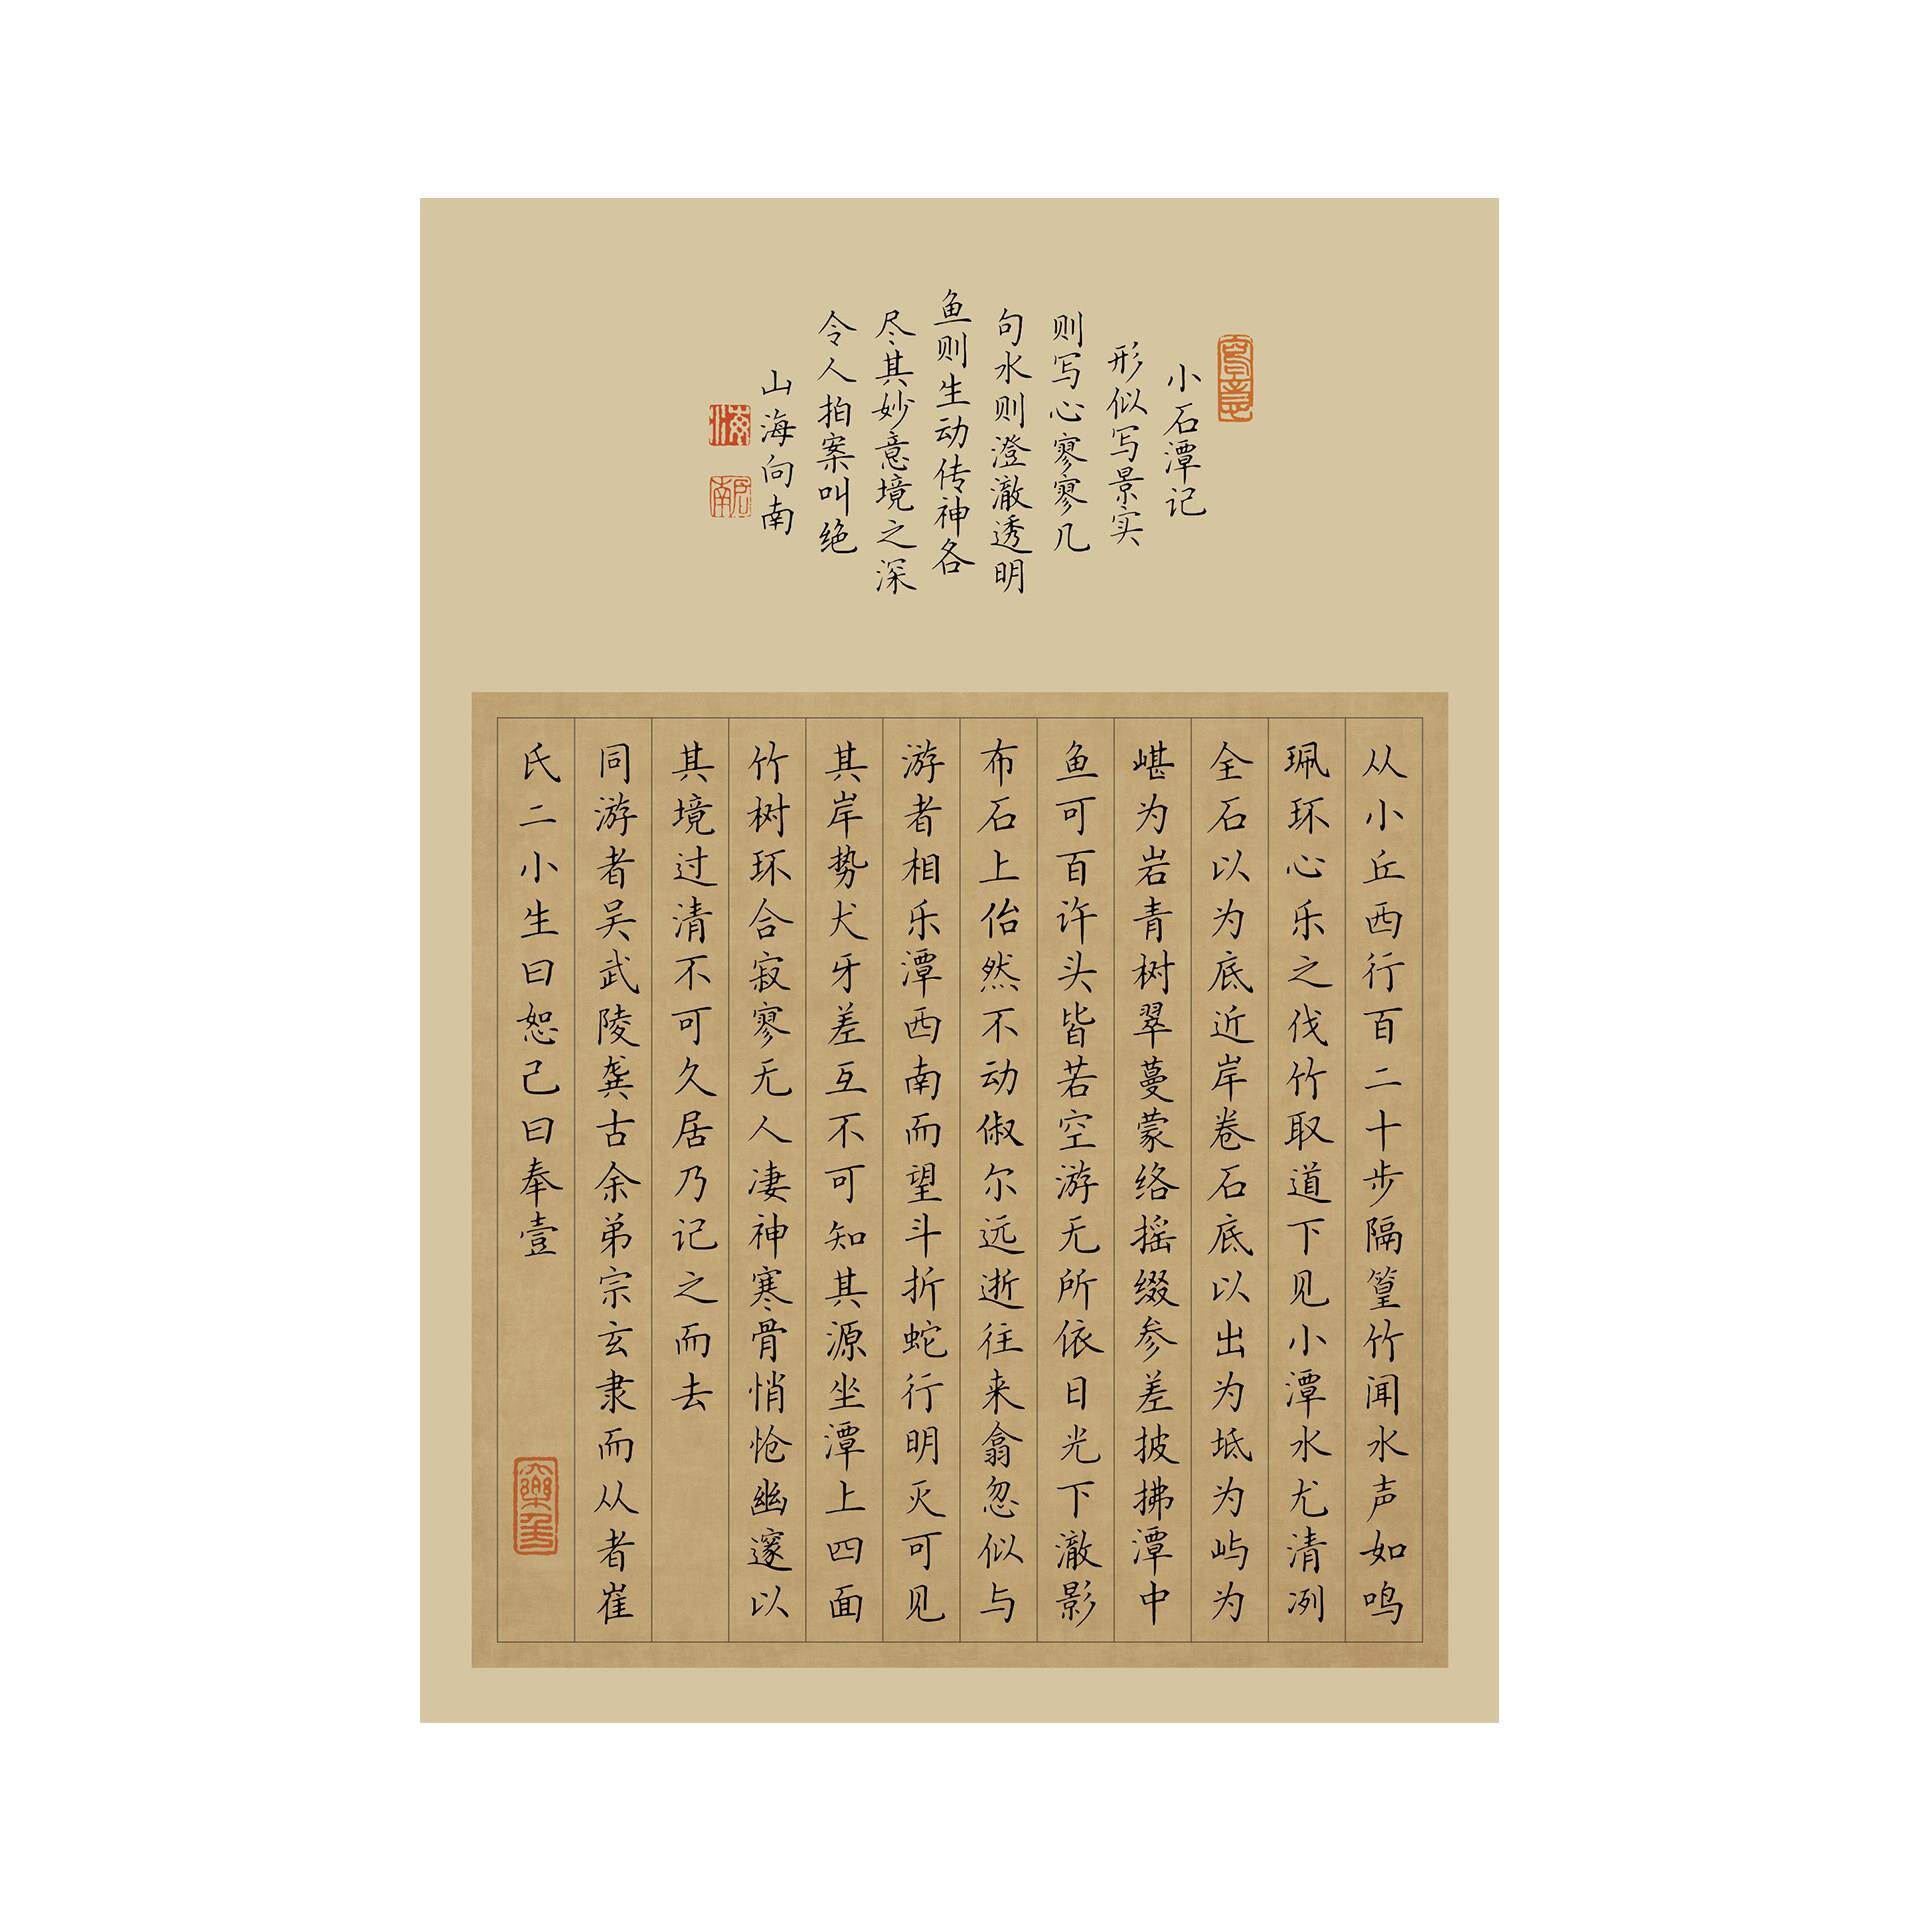 小石潭记
形似写景实
则写心寥寥几
句水则澄澈透明
鱼则生动传神各
尽其妙意境之深
令人拍案叫绝
山海向南
从小丘西行百二十步隔篁竹闻水声如鸣
珮环心乐之伐竹取道下见小潭水尤清冽
全石以为底近岸卷石底以出为坻为屿为
嵁为岩青树翠蔓蒙络摇缀参差披拂潭中
鱼可百许头皆若空游无所依日光下澈影
布石上佁然不动俶尔远逝往来翕忽似与
游者相乐潭西南而望斗折蛇行明灭可见
其岸势犬牙差互不可知其源坐潭上四面
竹树环合寂寥无人凄神寒骨悄怆幽邃以
其境过清不可久居乃记之而去
同游者吴武陵龚古余弟宗玄隶而从者崔
氏二小生曰恕己曰奉壹